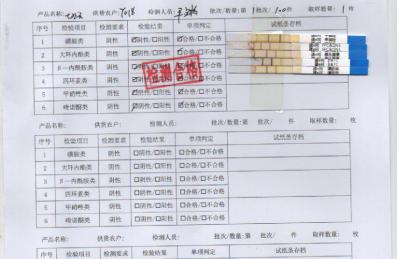 产品名称: 供货农户: 检测人员: 批次/数量:第1批次/100件 取样数量: 1 枚
序号 检验项目 检测要求 检验结果 单项判定 试纸条存档
1 磺胺类 阴性 ☑阴性/□阳性 ☑合格/□不合格
2 大环内酯类 阴性 ☑阴性/□阳性 ☑合格/□不合格
3 β一内酰胺类 阴性 ☑阴性/□阳性 ☑合格/□不合格
4 四环素类 阴性 ☑阴性/□阳性 ☑合格/□不合格
5 甲硝唑类 阴性 ☑阴性/□阳性 ☑合格/□不合格
6 喹诺酮类 阴性 ☑阴性/□阳性 ☑合格/□不合格
检测合格
产品名称: 供货农户: 检测人员: 批次/数量:第 批次/ 件 取样数量: 枚
序号 检验项目 检测要求 检验结果 单项判定 试纸条存档
1 磺胺类 阴性 □阴性/□阳性 □合格/□不合格
2 大环内酯类 阴性 □阴性/□阳性 □合格/□不合格
3 β一内酰胺类 阴性 □阴性/□阳性 □合格/□不合格
4 四环素类 阴性 □阴性/□阳性 □合格/□不合格
5 甲硝唑类 阴性 □阴性/□阳性 □合格/□不合格
6 喹诺酮类 阴性 □阴性/□阳性 □合格/□不合格
产品名称: 供货农户: 检测人员: 批次/数量:第 批次/ 件 取样数量: 枚
序号 检验项目 检测要求 检验结果 单项判定 试纸条存档